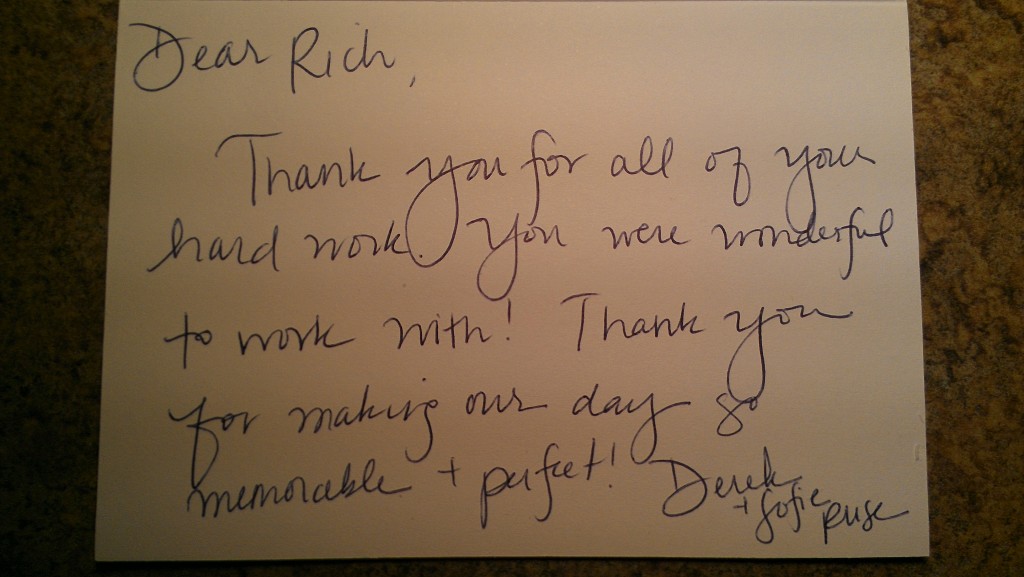 Dear Rich,
Thank you for all of your
hard work. You were wonderful
to work with! Thank you
for making our day so
memorable + perfect! Derek
+ Sofie